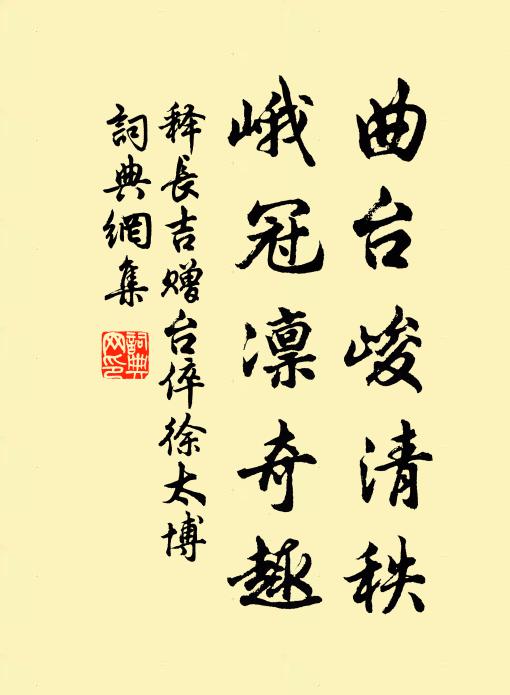 曲台峻清秩
峨冠凛奇趣
释長吉赠台倅徐太博
詞典網集
詞典网印